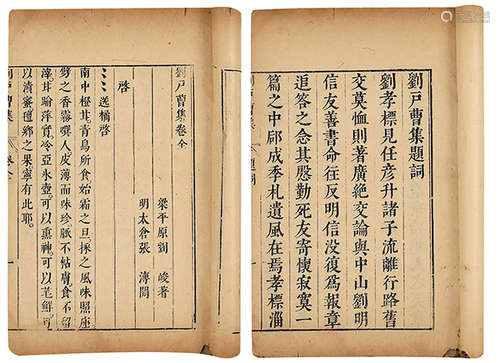 劉戸曹集題詞
劉孝標見任彦升諸子流離行路舊
交莫恤則著廣絶交論與中山劉明
信友善書命往反明信没復爲報章
追答之念其慇勤死友寄懷寂寞一
篇之中郈成季札遺風在焉孝標淄
劉戸曹集卷全
梁平原劉峻著
明太倉張溥閲
啓
送橘啓
南中橙甘青鳥所食始霜之旦採之風味照座
劈之香霧噀人皮薄而味珍脈不粘膚食不留
滓甘踰萍實冷亞氷壺可以熏神可以芼鮮可
以漬蜜氊鄉之果寧有此耶